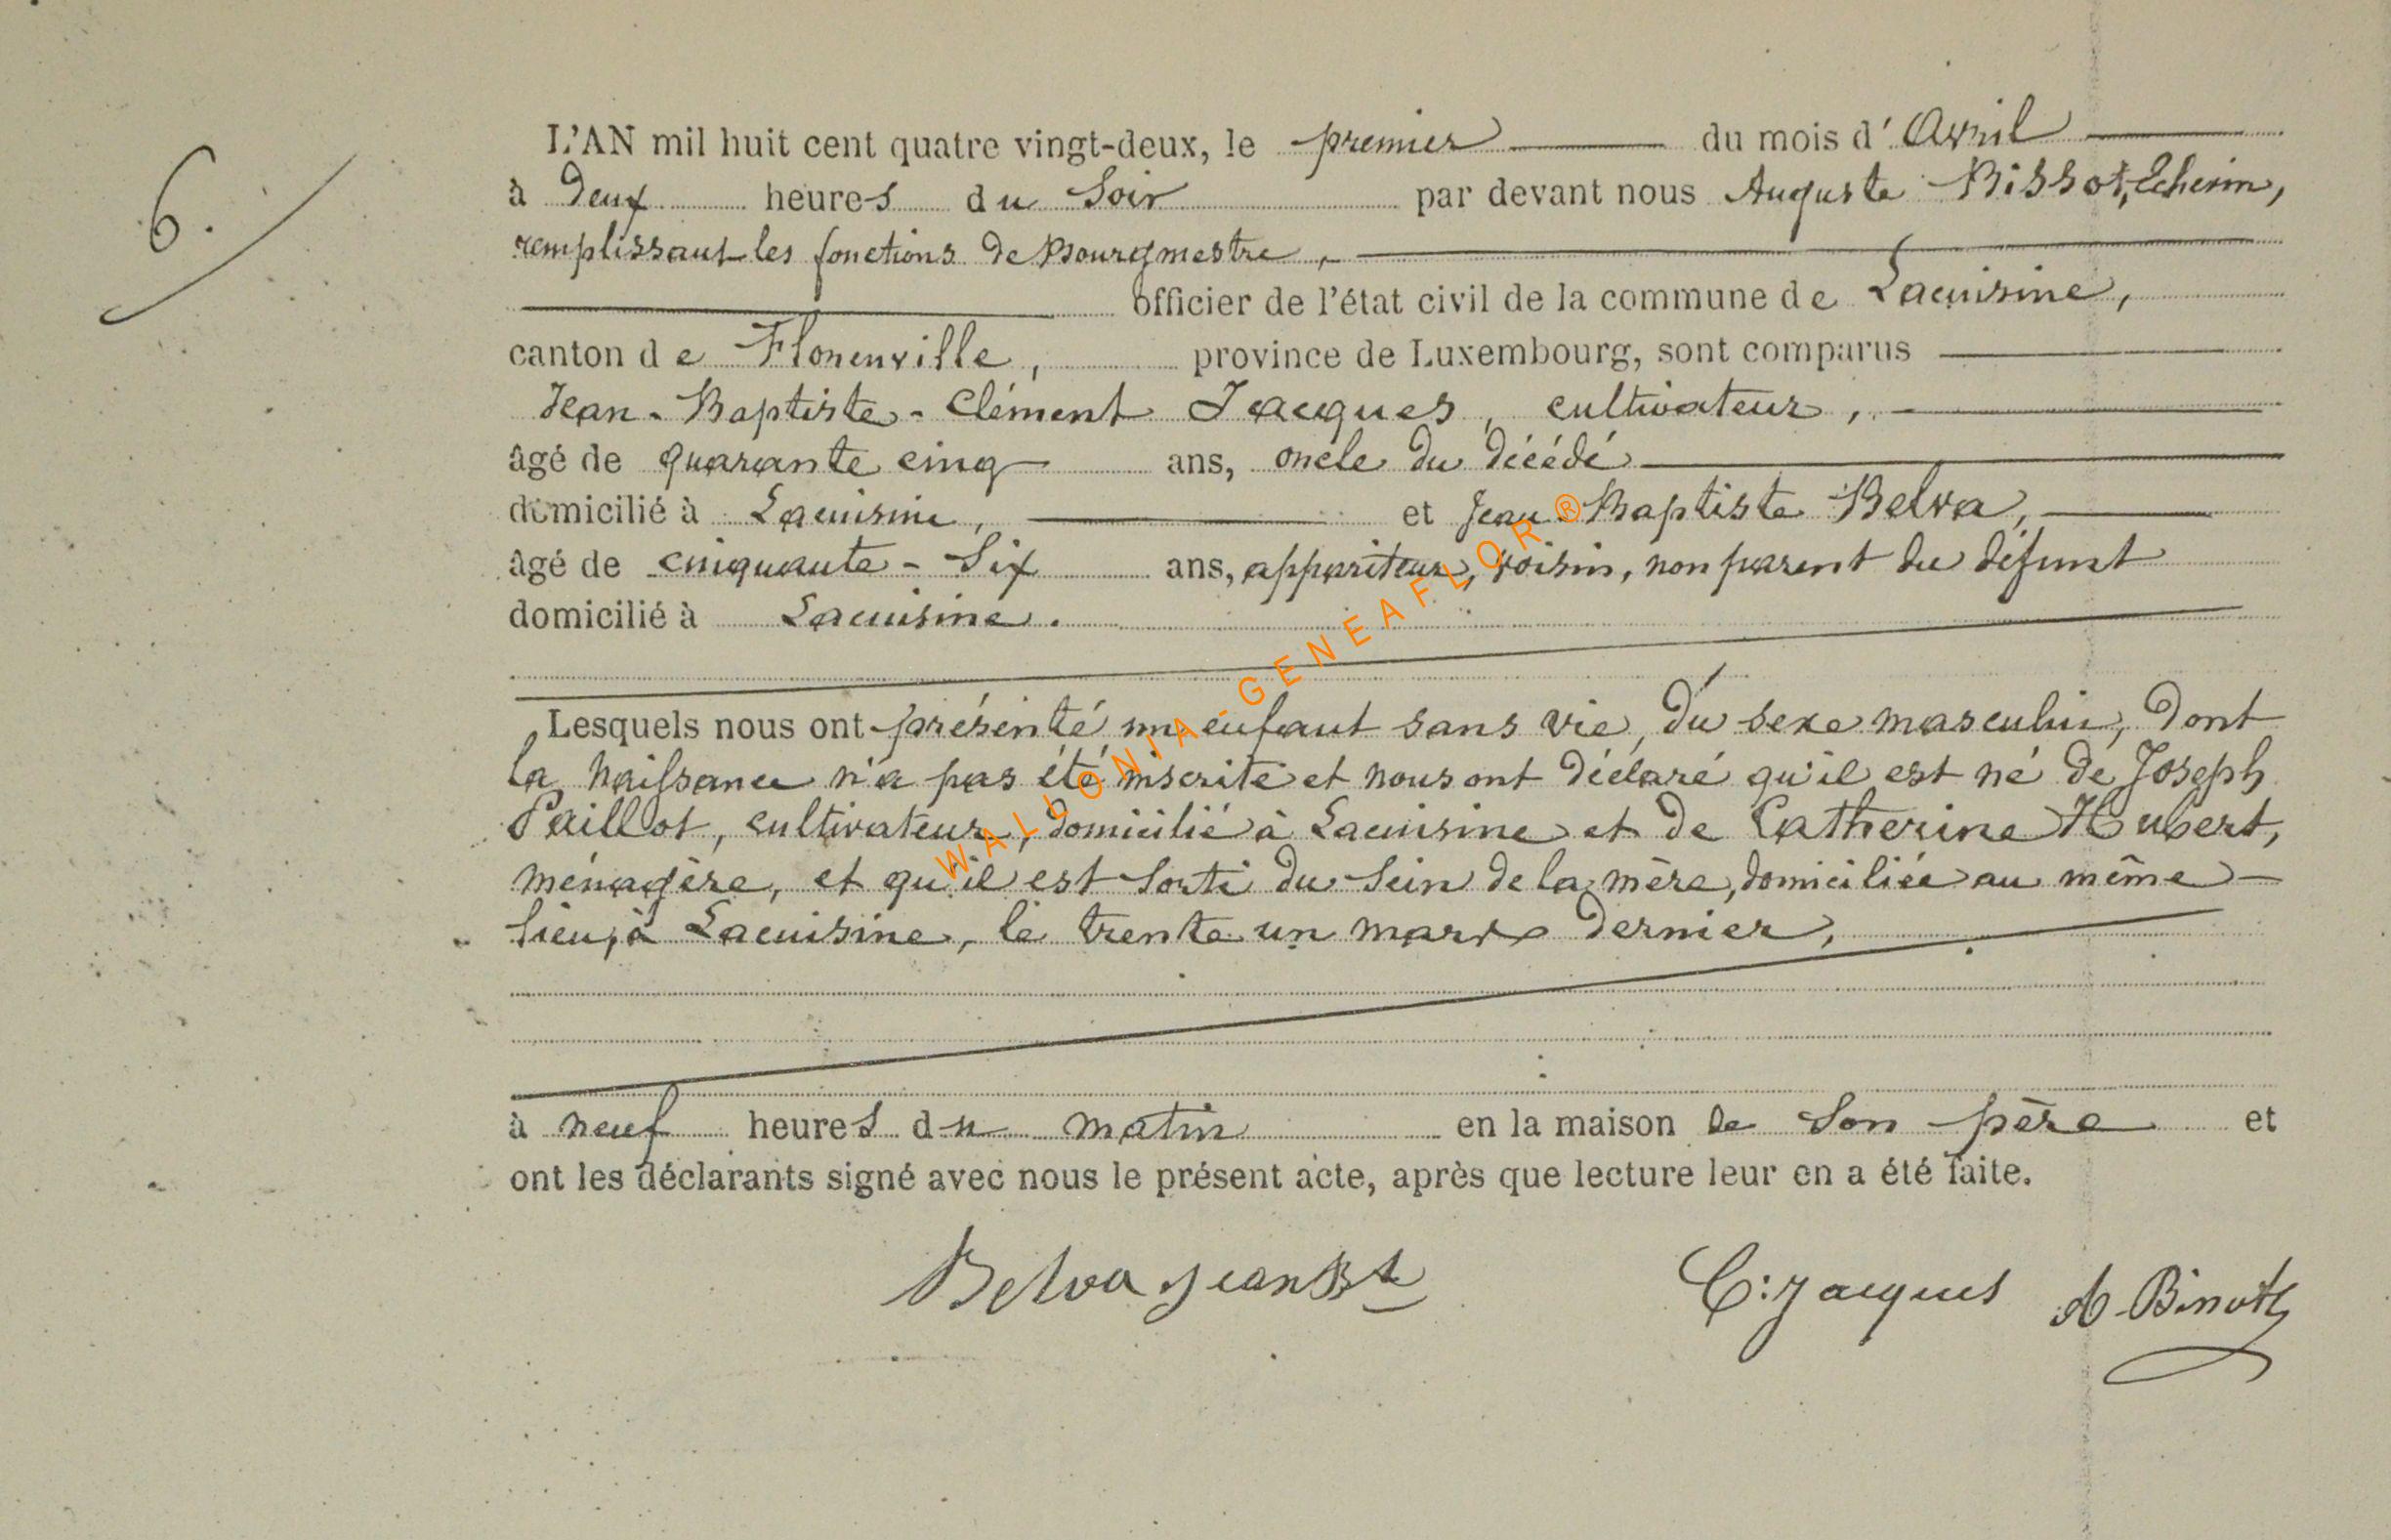 6.
L'AN mil huit cent quatre vingt-deux, le premier du mois d'Avril
à Deux heures du Soir par devant nous Auguste Echevin,
remplissant les fonctions de Bourgmestre,
officier de l'état civil de la commune de Lacuisine,
canton de Florenville, province de Luxembourg, sont comparus
Jean-Baptiste-Clément Jacques, cultivateur,
âgé de quarante cinq ans, oncle du décédé
domicilié à Lacuisine, et Jean-Baptiste Belva,
âgé de cinquante-Six ans, appariteur, voisin, non parent du défunt
domicilié à Lacuisine.
Lesquels nous ont présenté un enfant sans vie, du sexe masculin, dont
la naissance n'a pas été inscrite et nous ont déclaré qu'il est né de Joseph
Paillot, cultivateur, domicilié à Lacuisine et de Catherine Hubert,
ménagère, et qu'il est sorti du sein de la mère, domiciliée au même
lieu, à Lacuisine, le trente un mars dernier,
à neuf heures du matin en la maison de Son père et
ont les déclarants signé avec nous le présent acte, après que lecture leur en a été faite.
Belva jean Bte C: Jacques A. 
WALLONIA-GENEAFLOR®